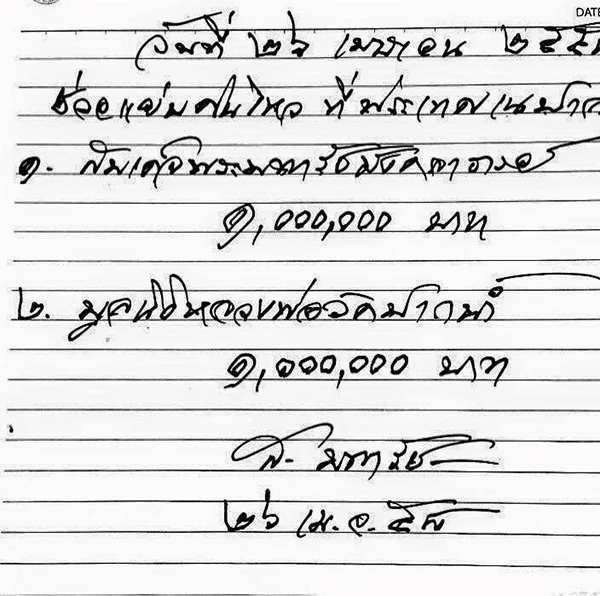 DATE
วันที่ ๒๖ เมษายน ๒๕๕๘
ช่วยแผ่นดินไหว ที่ประเทศเนปาล
๑. สมเด็จพระมหารัชมังคลาจารย์
๑,๐๐๐,๐๐๐ บาท
๒. มูลนิธิหลวงพ่อวัดปากน้ำ
๑,๐๐๐,๐๐๐ บาท
ส. มหารัช
๒๖ เม.ย. ๕๘